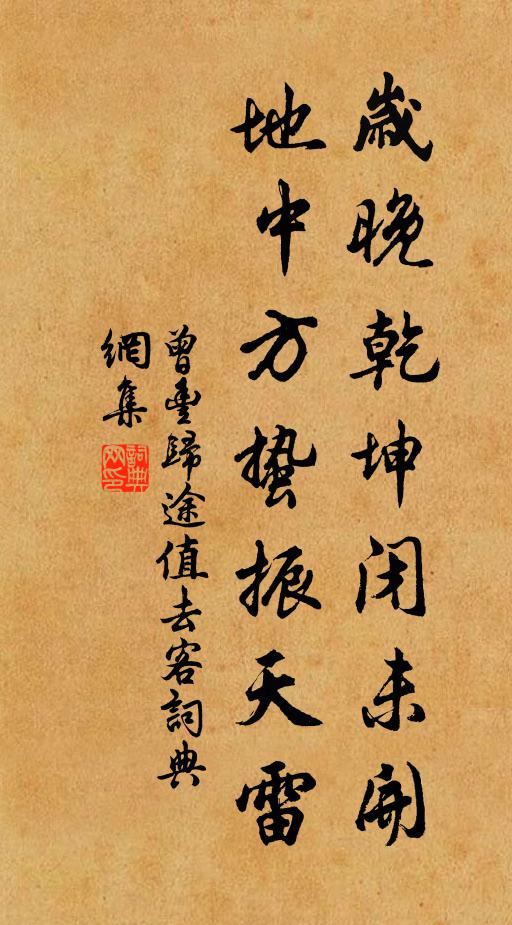 歲晚乾坤閉未開
地中方蟄振天雷
曾豐歸途值去客詞典
網集
詞典
網印